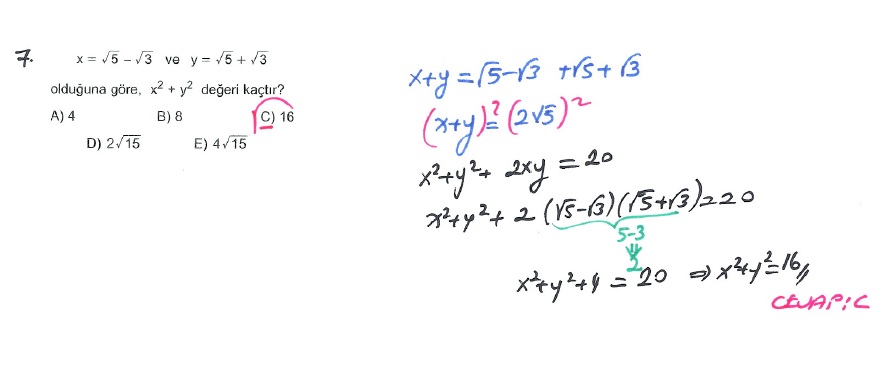 7.
x = √5 − √3 ve y = √5 + √3
olduğuna göre, x² + y² değeri kaçtır?
A) 4 B) 8 C) 16
D) 2√15 E) 4√15
x+y = √5−√3 +√5+√3
(x+y)² = (2√5)²
x²+y²+ 2xy = 20
x²+y²+ 2 (√5−√3)(√5+√3) = 20
5−3
2
x²+y²+4 = 20 ⇒ x²+y²=16//
CEVAP: C